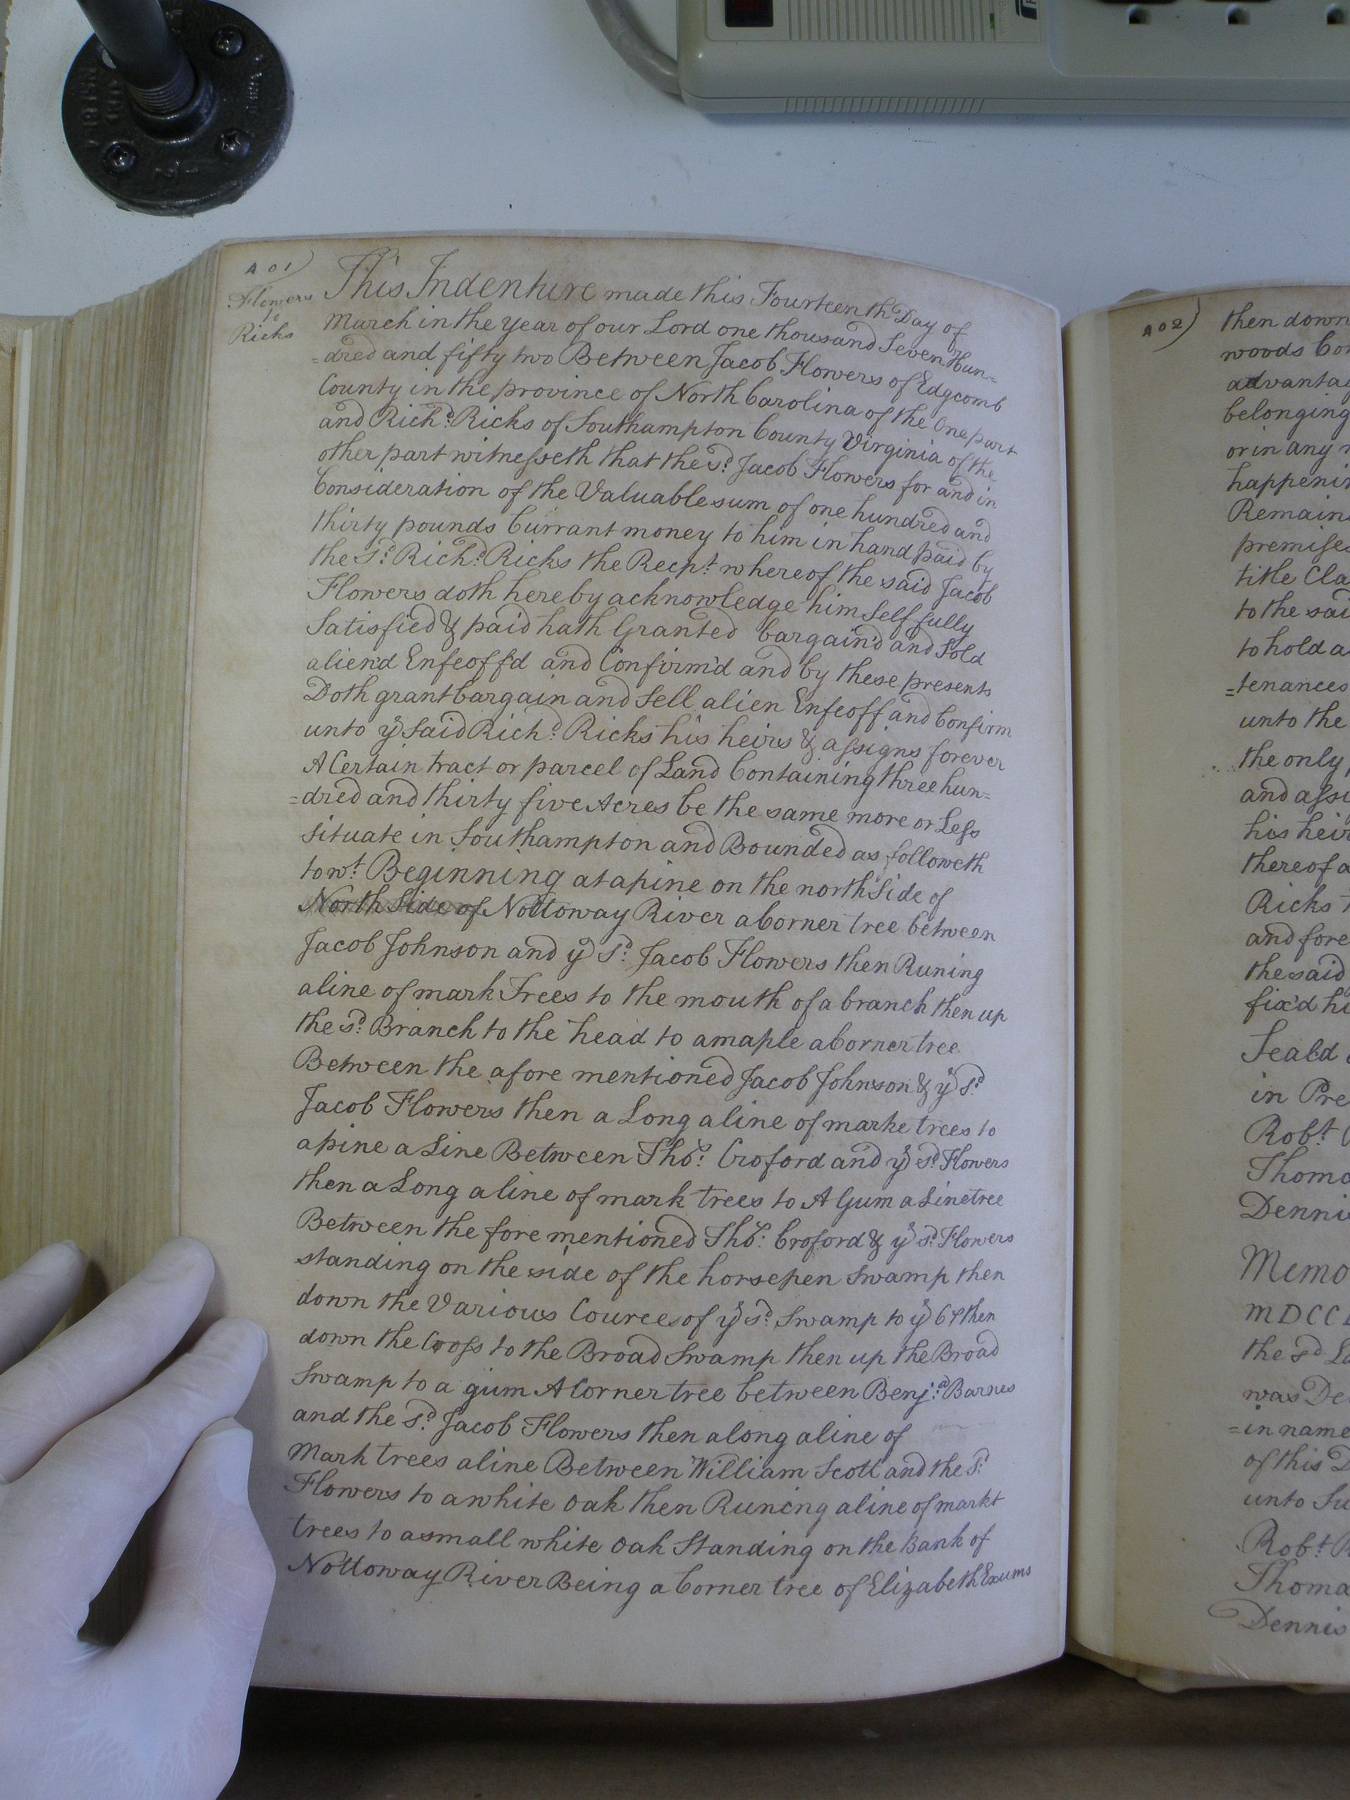 401)
Flowers
to
Ricks
This Indenture made this Fourteenth Day of
March in the year of our Lord one thousand Seven Hun=
=dred and fifty two Between Jacob Flowers of Edgcomb
County in the province of North Carolina of the One part
and Richd. Ricks of Southampton County Virginia of the
other part witnesseth that the sd. Jacob Flowers for and in
Consideration of the Valuable sum of one hundred and
thirty pounds Currant money to him in hand paid by
the sd. Richd. Ricks the Recpt. whereof the said Jacob
Flowers doth hereby acknowledge him Self fully
Satisfied & paid hath Granted bargain'd and Sold
aliend Enfeoff'd and Confirm'd and by these presents
Doth grant bargain and Sell alien Enfeoff and Confirm
unto ye Said Richd. Ricks his heirs & assigns forever
A Certain tract or parcel of Land Containing three hun=
=dred and thirty five Acres be the same more or Less
situate in Southampton and Bounded as followeth
towt. Beginning at a pine on the north Side of
North Side of Nottoway River a Corner tree between
Jacob Johnson and ye sd. Jacob Flowers then Runing
a line of mark Trees to the mouth of a branch then up
the sd. Branch to the head to a maple a Corner tree
Between the afore mentioned Jacob Johnson & ye sd.
Jacob Flowers then a Long a line of marke trees to
a pine a Line Between Thos. Croford and ye sd. Flowers
then a Long a line of mark trees to A Gum a Line tree
Between the fore mentioned Thos. Croford & ye sd. Flowers
standing on the side of the horsepen Swamp then
down the Various Cources of ye sd. Swamp to ye Cr then
down the Cross to the Broad Swamp then up the Broad
Swamp to a gum A Corner tree between Benja. Barnes
and the sd. Jacob Flowers then along a line of
Mark trees a line Between William Scott and the sd.
Flowers to a white Oak then Runing a line of markt
trees to a small white Oak Standing on the Bank of
Nottoway River Being a Corner tree of Elizabeth Exums
402)
then down
woods
belonging
or in any
the said
to hold a
=tenances
unto the
the only
his heir
thereof a
Ricks
and fore
the said
fix'd hi
Seald
in Pre
Robt.
Dennis
the sd
was De
=in name
of this D
unto
Robt.
Dennis